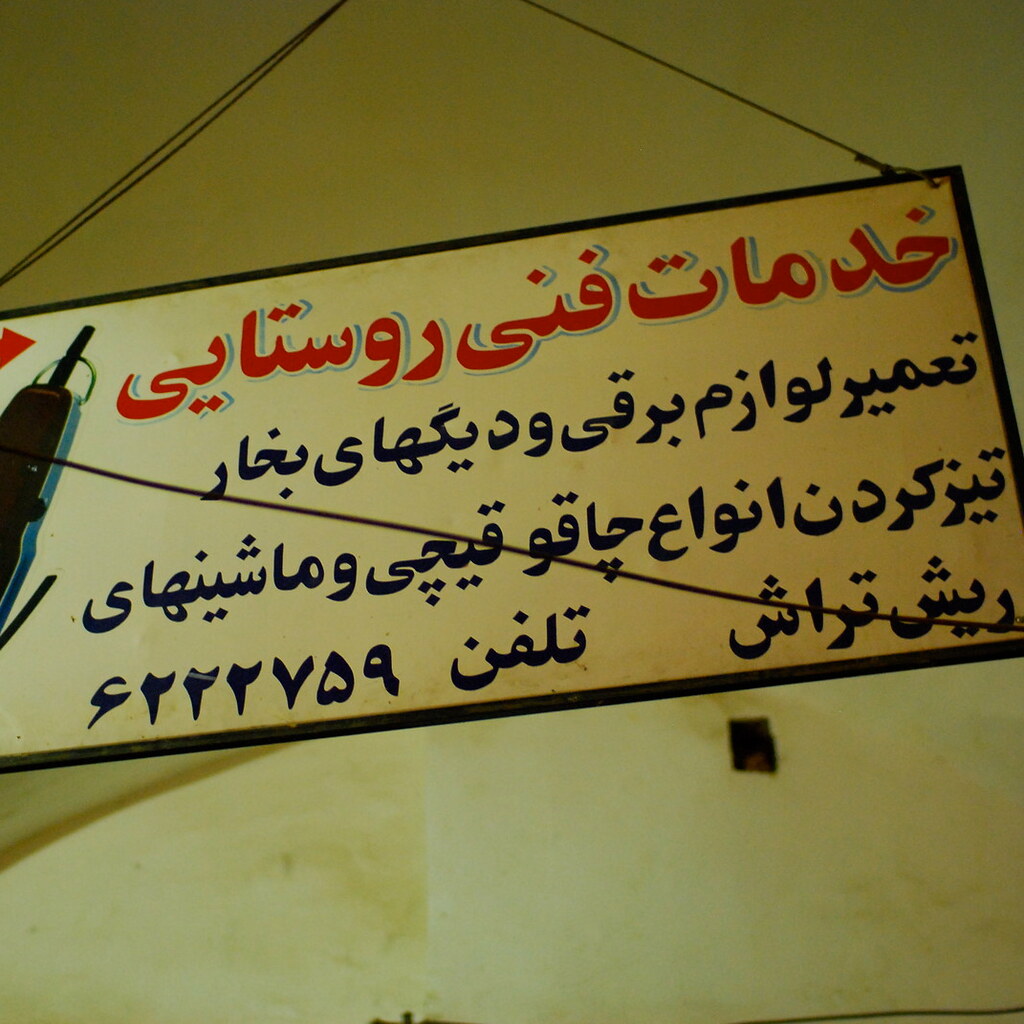 خدمات فنی روستایی
تعمیر لوازم برقی و دیگهای بخار
تیز کردن انواع چاقو قیچی و ماشینهای
ریش تراش تلفن ۶۲۲۲۷۵۹